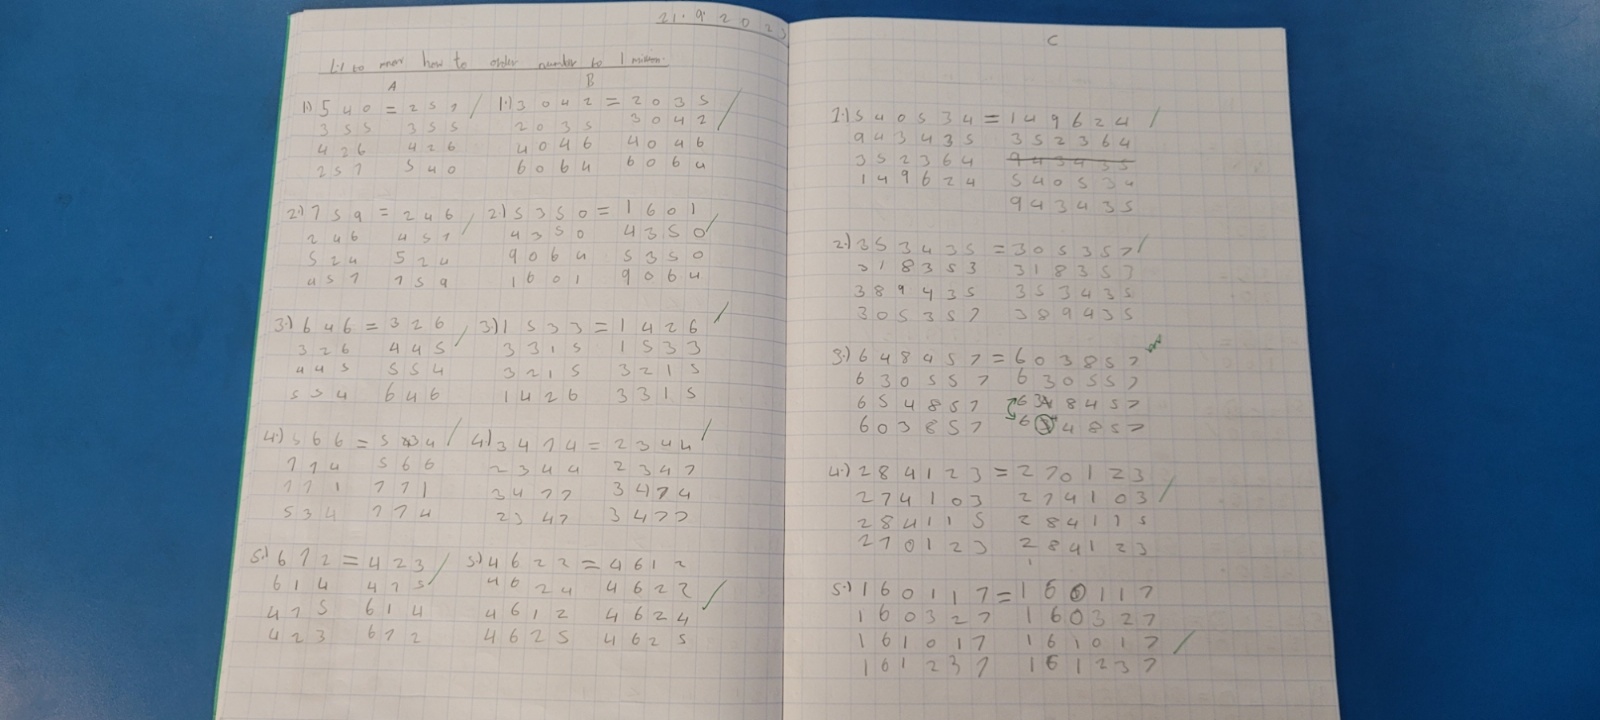 21.9.2023
L.I to know how to order number to 1 million.
A
1) 540 = 257
355 355
426 426
257 540
2.) 759 = 246
246 457
524 524
457 759
3.) 646 = 326
326 445
445 554
554 646
4.) 566 = 534
774 566
771 771
534 774
5.) 672 = 423
614 475
475 614
423 672
B
1.) 3042 = 2035
2035 3042
4046 4046
6064 6064
2.) 5350 = 1601
4350 4350
9064 5350
1601 9064
3.) 1533 = 1426
3315 1533
3215 3215
1426 3315
4.) 3474 = 2344
2344 2347
3477 3474
2347 3477
5.) 4622 = 4612
4624 4622
4612 4624
4625 4625
C
1.) 540534 = 149624
943435 352364
352364 943435
149624 540534
943435
2.) 353435 = 305357
318353 318353
389435 353435
305357 389435
3.) 648457 = 603857
630557 630557
654857 648457
603857 654857
4.) 284123 = 270123
274103 274103
284115 284115
270123 284123
5.) 160117 = 160117
160327 160327
161017 161017
161237 161237